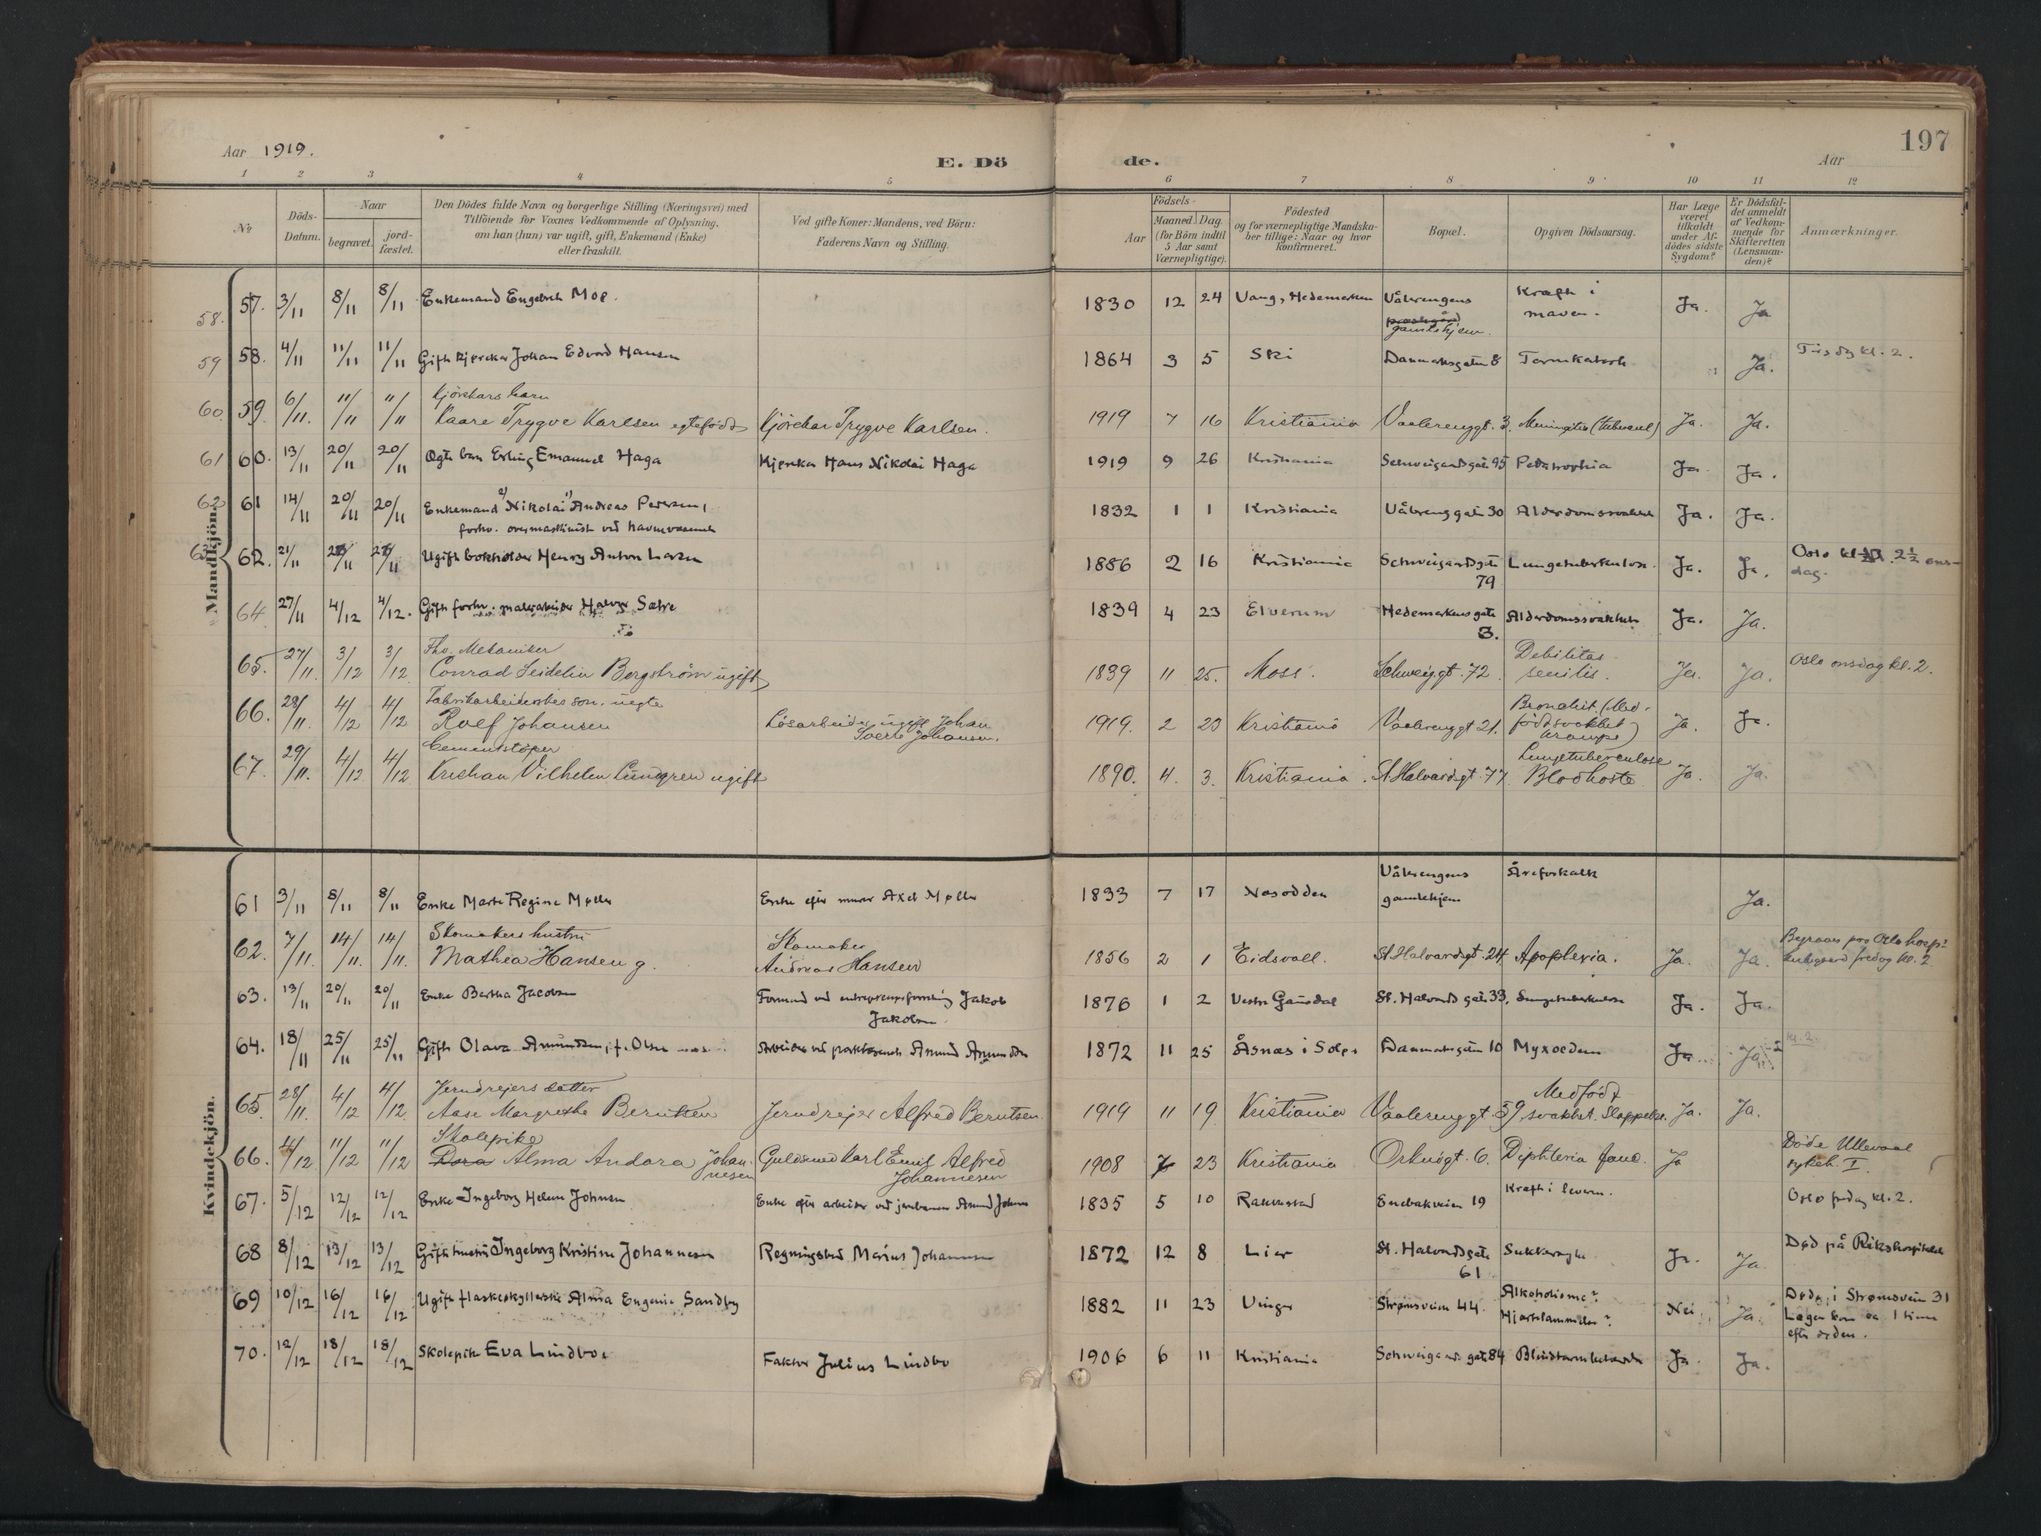 197
Aar 1919.
E. Dö de.
Aar
1 2 3 4 5 6 7 8 9 10 11 12
№
Döds-Datum.
Naar
begravet.
jord-fæstet.
Den Dödes fulde Navn og borgerlige Stilling (Næringsvei) med
Tilföiende for Voxnes Vedkommende af Oplysning,
om han (hun) var ugift, gift, Enkemand (Enke)
eller fraskilt.
Ved gifte Koner: Mandens, ved Börn:
Faderens Navn og Stilling.
Födsels-
Aar
Maaned
Dag
(for Börn indtil
5 Aar samt
Værnepligtige).
Födested
og for værnepligtige Mandska-
ber tillige: Naar og hvor
konfirmeret.
Bopæl.
Opgiven Dödsaarsag.
Har Læge
været
tilkaldt
under Af-
dödes sidste
Sygdom?
Er Dödsfal-
det anmeldt
af Vedkom-
mende for
Skifteretten
(Lensman-
den)?
Anmærkninger.
Mandkjön.
58. 57. 3/11 8/11 8/11 Enkemand Engebret Moe. 1830 12 24 Vang, Hedemarken Vålerengens gamlehjem. Kræft i maven. Ja. Ja
59 58. 4/11 11/11 11/11 Gift kjørekar Johan Edvard Hansen 1864 3 5 Ski Danmarksgaten 8 Tarmkatarh Ja. Tirsdag kl. 2.
60. 59. 6/11. 11/11 11/11 Kjörekars barn
Kaare Trygve Karlsen egtefödt Kjörekar Trygve Karlsen. 1919 7 16 Kristiania Vaalerenggt. 3. Meningitis (tubercul) Ja. Ja.
61 60. 13/11 20/11 20/11 Ægte barn Erling Emanuel Haga Kjørekar Hans Nikolai Haga 1919 9 26 Kristiania Schweigaardsgate 95 Pedatrophia Ja. Ja.
62 61 14/11 20/11 20/11 Enkemand 2) Nikolai 1) Andreas Petersen,
forhv. overmaskinist ved havnevæsenet 1832 1 1 Kristiania Vålerenggaten 30 Alderdomssvakhet Ja. Ja.
63. 62. 21/11 Ugift bokholder Henry Anton Larsen 1886 2 16 Kristiania Schweigaardsgate 79 Lungetuberkulose. Ja. Ja. Oslo 2½ onsdag.
64 27/11 4/12 4/12. Gift forhv. malerarbeider Halvor Sætre 1839 4 23 Elverum Hedemarkens gate 3. Alderdomssvakhet Ja. Ja.
65. 27/11. 3/12 3/12 Fhv. Mekaniker
Conrad Seidelin Bergström ugift 1839 11 25. Moss. Schweiggt. 72. Debilitas senilis. Ja. Ja. Oslo onsdag kl. 2.
66. 28/11. 4/12 4/12 Fabrikarbeiderskes sön. uegte
Rolf Johansen Lösarbeider ugift Johan
Sverre Johansen. 1919. 2 23 Kristiania Vaalerenggt 21. Bronchit. (Medfödt svakhet) krampe Ja. Ja.
67. 29/11. 4/12 4/12 Cementstöper
Kristian Vilhelm Lundgren ugift 1890. 4. 3. Kristiania. St Halvardsgt. 77 Lungetuberculose
Blodhoste Ja. Ja.
Kvindekjön.
61 3/11 8/11 8/11 Enke Marte Regine Møller Enke efter murer Axel Møller 1833 7 17 Nesodden Vålerengens gamlehjem Åreforkalk Ja.
62. 7/11. 14/11. 14/11. Skomakers hustru
Mathea Hansen g. Skomaker
Andreas Hansen 1856 2 1 Eidsvoll. St Halvardsgt. 24 Apoplexia. Ja. Ja. kl. 2
63. 13/11 20/11 20/11 Enke Bertha Jacobsen Formand ved entreprenørforretning Jakob
Jakobsen 1876 1 2 Vestre Gausdal St. Halvards gate 33. Lungetuberkulose Ja. Ja.
64. 18/11 25/11 25/11 Gift Olava Amundsen, f. Olsen Arbeider ved parkvæsenet Amund Amundsen 1872 11 25 Åsnæs i Solør Danmarksgaten 10 Myxoedem Ja. Ja. kl. 2.
65. 28/11. 4/12 4/12 Jerndreiers datter
Aase Margrethe Berntsen Jerndreier Alfred Berntsen. 1919 11 19 Kristiania Vaalerenggt. 59 Medfödt svakhet. Slappelse. Ja. Ja.
66. 4/12 11/12 11/12 Skolepike
Dora Alma Andora Johannesen Guldsmed Karl Emil Alfred
Johannesen 1908 7 23 Kristiania Orknögt. 6. Diphteria fauc. Ja Döde Ullevaal sykeh. I.
67. 5/12 12/12 12/12 Enke Ingeborg Helene Johnsen Enke efter arbeider ved jernbanen Amund Johnsen 1835 5 10 Rakkestad Enebakveien 19 Kræft i leveren. Oslo fredag kl. 2.
68 8/12 13/12 13/12 Gift hustru Ingeborg Kristine Johannesen Regningsbud Marius Johannesen 1872 12 8 Lier St. Halvards gate 61 Sukkersyke Ja. Ja. Død på Rikshospitalet
69 10/12 16/12 16/12 Ugift flaskeskyllerske Alma Eugenie Sandby 1882 11 23 Vinger Strømsveien 44. Alkoholisme?
Hjertelammelse? Nei. Ja. Døde i Strømsveien 31
Lægen kom ca 1 time
efter døden.
70. 12/12 18/12 18/12 Skolepike Eva Lindboe Faktor Julius Lindbo 1906 6 11 Kristiania Schweigaards gate 84 Blindtarmbetændelse Ja. Ja.